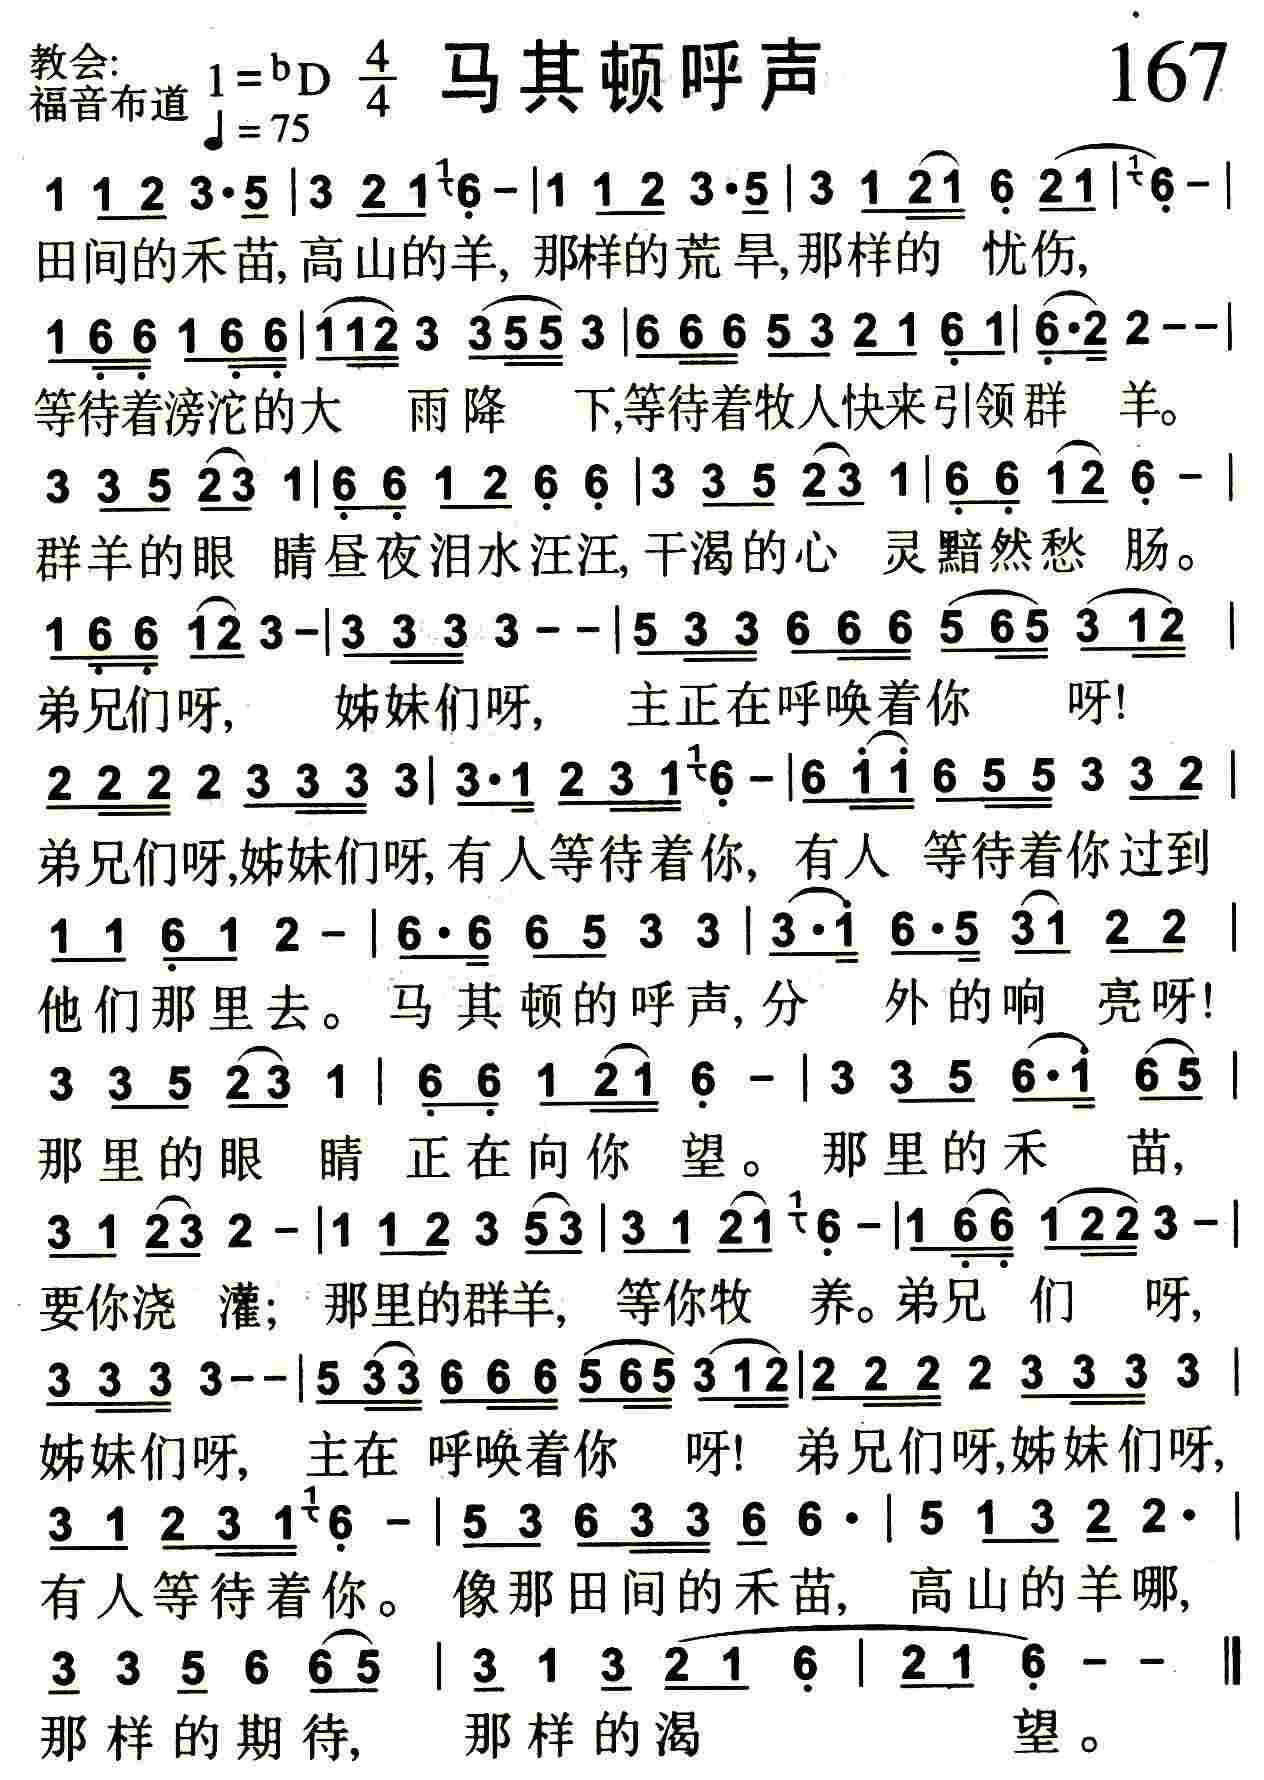 教会: 1=♭D 4/4 马其顿呼声 167
福音布道 ♩=75
1 1 2 3·5 | 3 2 1 1 6 - | 1 1 2 3·5 | 3 1 2 1 6 2 1 | 1 6 - |
田间的禾苗,高山的羊, 那样的荒旱,那样的 忧伤,
1 6 6 1 6 6 | 1 1 2 3 3 5 5 3 | 6 6 6 5 3 2 1 6 1 | 6·2 2 - - |
等待着滂沱的大 雨降 下,等待着牧人快来引领群 羊。
3 3 5 2 3 1 | 6 6 1 2 6 6 | 3 3 5 2 3 1 | 6 6 1 2 6 - |
群羊的眼 睛昼夜泪水汪汪,干渴的心 灵黯然愁 肠。
1 6 6 1 2 3 - | 3 3 3 3 - - | 5 3 3 6 6 6 5 6 5 3 1 2 |
弟兄们呀, 姊妹们呀, 主正在呼唤着你 呀!
2 2 2 2 3 3 3 3 | 3·1 2 3 1 1 6 - | 6 1 1 6 5 5 3 3 2 |
弟兄们呀,姊妹们呀,有人等待着你, 有人 等待着你过到
1 1 6 1 2 - | 6·6 6 5 3 3 | 3·1 6·5 3 1 2 2 |
他们那里去。马其顿的呼声,分 外的响 亮呀!
3 3 5 2 3 1 | 6 6 1 2 1 6 - | 3 3 5 6·1 6 5 |
那里的眼 睛 正在向你 望。 那里的禾 苗,
3 1 2 3 2 - | 1 1 2 3 5 3 | 3 1 2 1 1 6 - | 1 6 6 1 2 2 3 - |
要你浇 灌; 那里的群羊, 等你牧 养。弟兄 们 呀,
3 3 3 3 - - | 5 3 3 6 6 6 5 6 5 3 1 2 | 2 2 2 2 3 3 3 3 |
姊妹们呀, 主在 呼唤着你 呀! 弟兄们呀,姊妹们呀,
3 1 2 3 1 1 6 - | 5 3 6 3 3 6 6· | 5 1 3 2 2· |
有人等待着你。 像那田间的禾苗, 高山的羊哪,
3 3 5 6 6 5 | 3 1 3 2 1 6 | 2 1 6 - - ‖
那样的期待, 那样的渴 望。